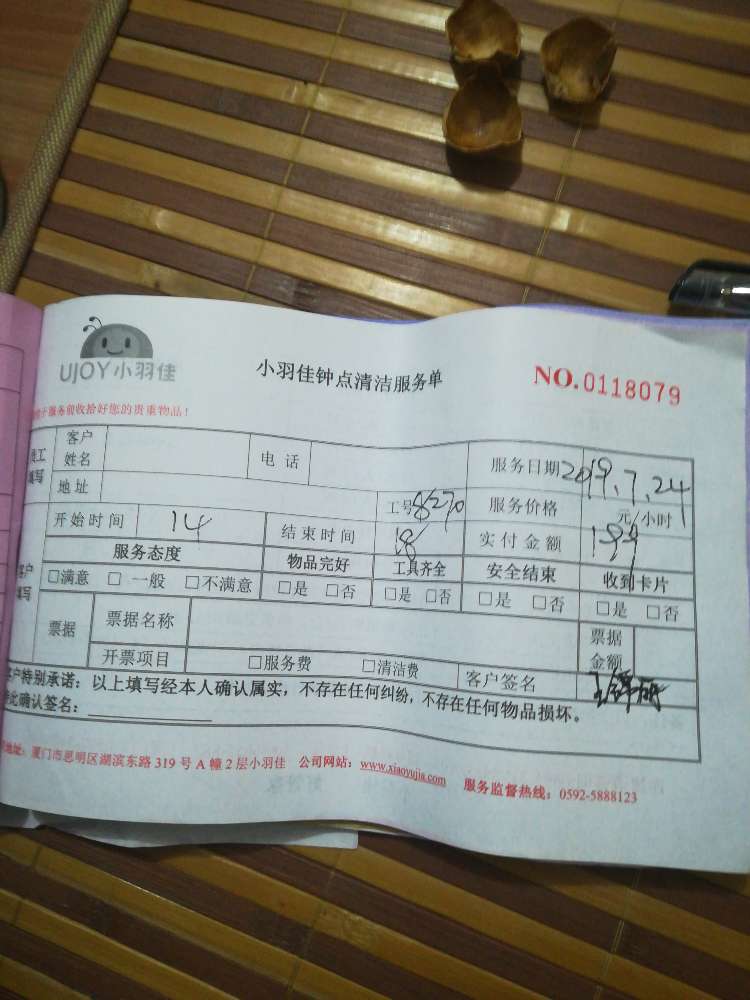 UJOY小羽佳
小羽佳钟点清洁服务单
NO.0118079
服务前收拾好您的贵重物品！
客户姓名 电话 服务日期 2019.7.24
地址 工号 8270 服务价格 元/小时
开始时间 14 结束时间 18 实付金额
服务态度 物品完好 工具齐全 安全结束 收到卡片
□满意 □一般 □不满意 □是 □否 □是 □否 □是 □否 □是 □否
票据 票据名称 票据金额
开票项目 □服务费 □清洁费 客户签名
客户特别承诺：以上填写经本人确认属实，不存在任何纠纷，不存在任何物品损坏。
此确认签名：
地址：厦门市思明区湖滨东路319号A幢2层小羽佳 公司网站：www.xiaoyujia.com 服务监督热线：0592-5888123